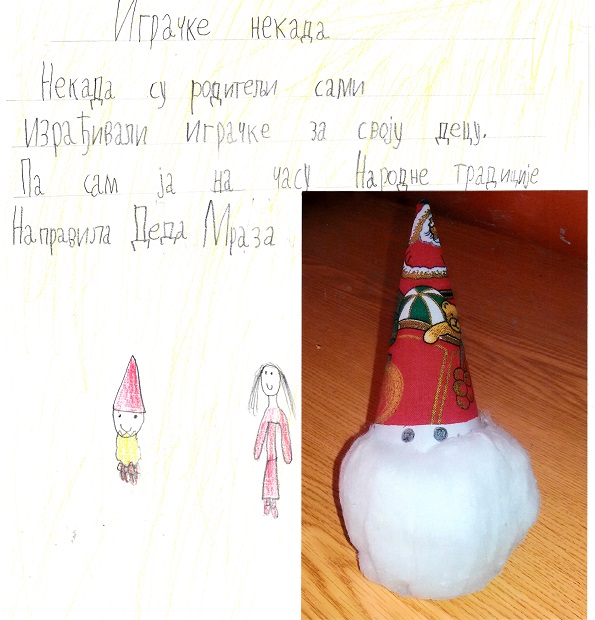 Играчке некада
Некада су родитељи сами
израђивали играчке за своју децу.
Па сам ја на часу Народне традиције
Направила Деда Мраза